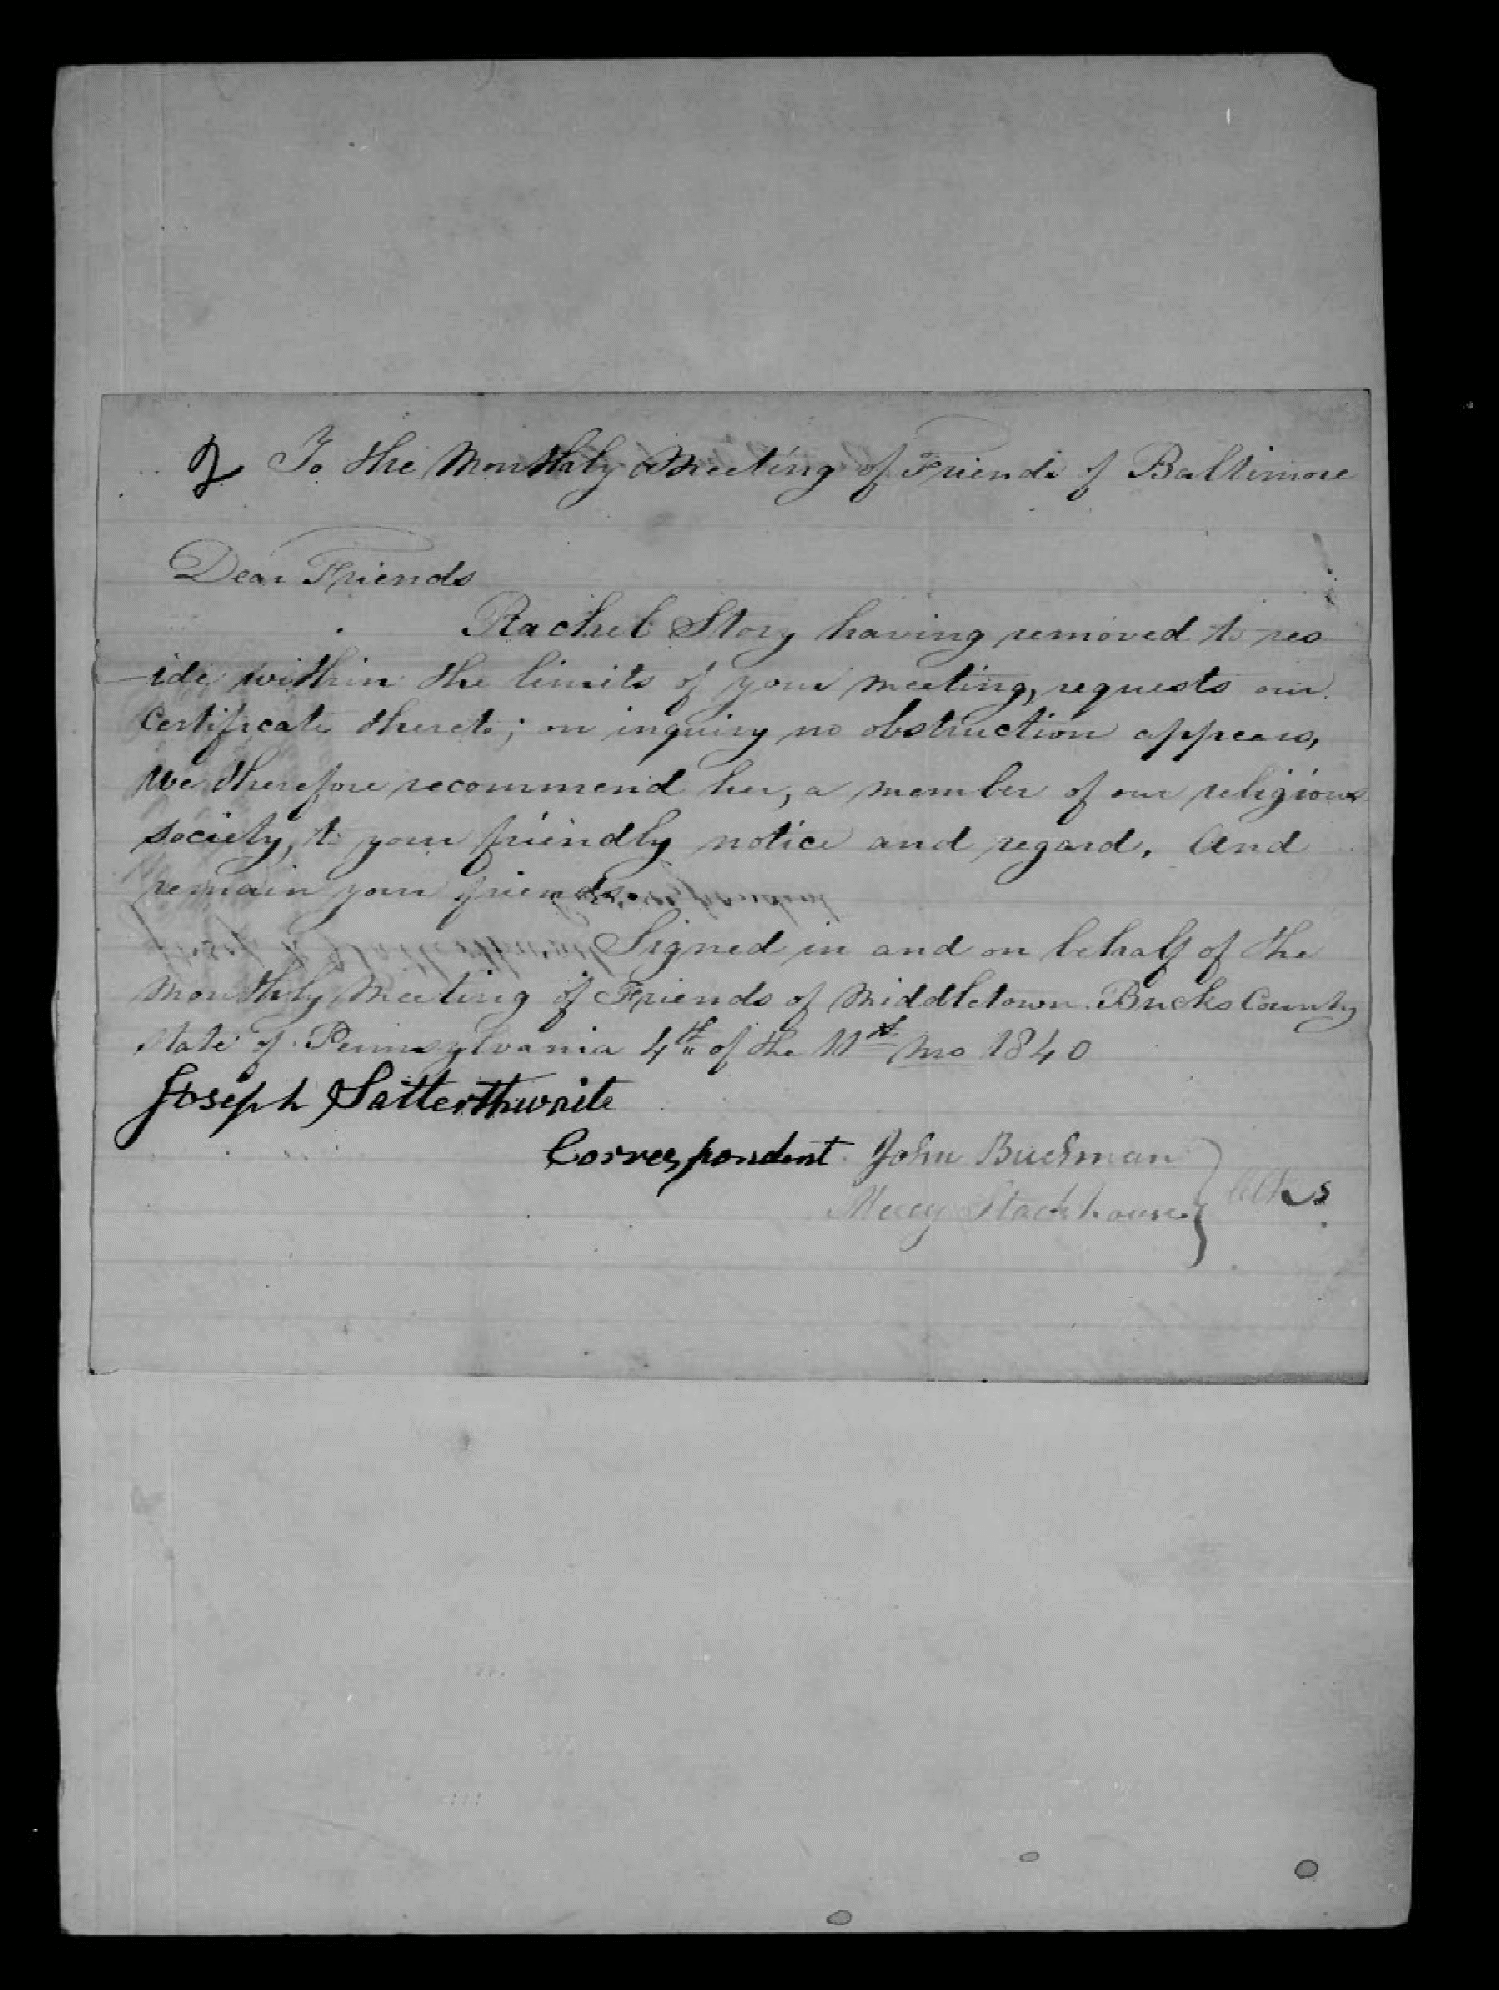 To the Monthly Meeting of Friends of Baltimore
Dear Friends
Rachel Story having removed to res
ide within the limits of your meeting, requests our
Certificate thereto; on inquiry no obstruction appears,
We therefore recommend her, a member of our religious
society, to your friendly notice and regard. And
remain your friends.
Signed in and on behalf of the
Monthly Meeting of Friends of Middletown Bucks County
state of Pennsylvania 4th of the 11th mo 1840
Joseph Satterthwaite
Correspondent John Buckman
Mercy Stackhouse } Clks